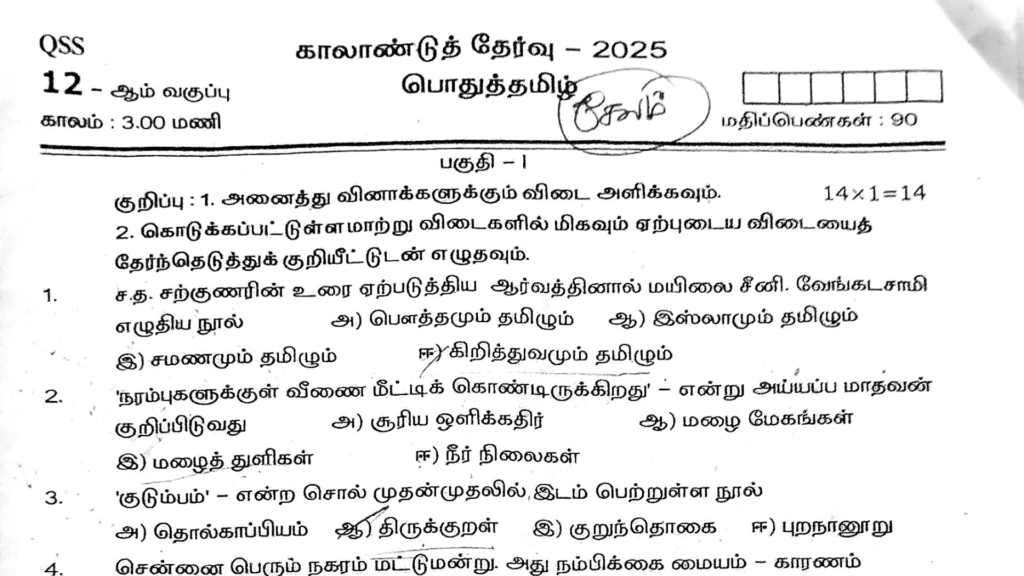 QSS
காலாண்டுத் தேர்வு – 2025
12 - ஆம் வகுப்பு
பொதுத்தமிழ்
சேலம்
காலம் : 3.00 மணி
மதிப்பெண்கள் : 90
பகுதி – I
குறிப்பு : 1. அனைத்து வினாக்களுக்கும் விடை அளிக்கவும். 14×1=14
2. கொடுக்கப்பட்டுள்ளமாற்று விடைகளில் மிகவும் ஏற்புடைய விடையைத்
தேர்ந்தெடுத்துக் குறியீட்டுடன் எழுதவும்.
1. ச.த. சற்குணரின் உரை ஏற்படுத்திய ஆர்வத்தினால் மயிலை சீனி. வேங்கடசாமி
எழுதிய நூல் அ) பௌத்தமும் தமிழும் ஆ) இஸ்லாமும் தமிழும்
இ) சமணமும் தமிழும் ஈ) கிறித்துவமும் தமிழும்
2. 'நரம்புகளுக்குள் வீணை மீட்டிக் கொண்டிருக்கிறது' – என்று அய்யப்ப மாதவன்
குறிப்பிடுவது அ) சூரிய ஒளிக்கதிர் ஆ) மழை மேகங்கள்
இ) மழைத் துளிகள் ஈ) நீர் நிலைகள்
3. 'குடும்பம்' – என்ற சொல் முதன்முதலில் இடம் பெற்றுள்ள நூல்
அ) தொல்காப்பியம் ஆ) திருக்குறள் இ) குறுந்தொகை ஈ) புறநானூறு
4. சென்னை பெரும் நகரம் மட்டுமன்று. அது நம்பிக்கை மையம் – காரணம்